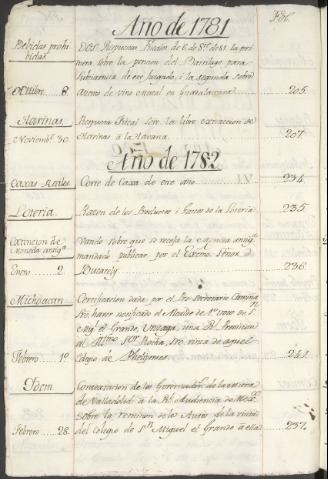 Año de 1781
Fol.
Bebidas prohi
bidas
Dos Respuestas Fiscales de 6 de Sre. de 81 la pri
mera sobre la pension del Barrilage para
subsistencia de ese Juzgado; i la segunda sobre
Octubre 8
aforos de vino en Guadalaxara
205
Harinas
Respuesta Fiscal sobre la libre extraccion de
Noviembre 30
Harinas a la Havana
207
Año de 1782
Caxas Reales
Corte de Caxa de ese año
234
Loteria
Razon de los Productos i Gastos de la Loteria
235
Extincion de
Moneda antigua
Vando sobre que se recoja la Moneda antiga
mandado publicar por el Exmo Señor
Enero 2
Bucareli
236
Michoacan
Certificacion dada por el Secretario
haver notificado el Alcalde de 1º voto de Sn
Migl el Grande, una Rl Provision
al Rocha, sre. visita de aquel
Febrero 1º
Colegio de Phelipenses
241
Ydem
Contextacion de los Governadores de la Mitra
de Valladolid a la Rl Audiencia de Mexco
sobre la remision de los Autos de la visita
Febrero 28
del Colegio de Sn Miguel el Grande a ella
237